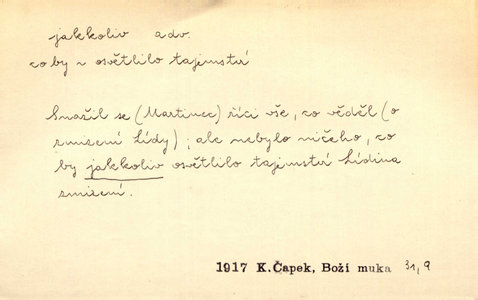 jakkoliv adv.
co by ~ osvětlilo tajemství
Snažil se (Martinec) říci vše, co věděl (o
zmizení Lídy); ale nebylo ničeho, co
by jakkoliv osvětlilo tajemství Lídina
zmizení.
1917 K.Čapek, Boží muka 31,9